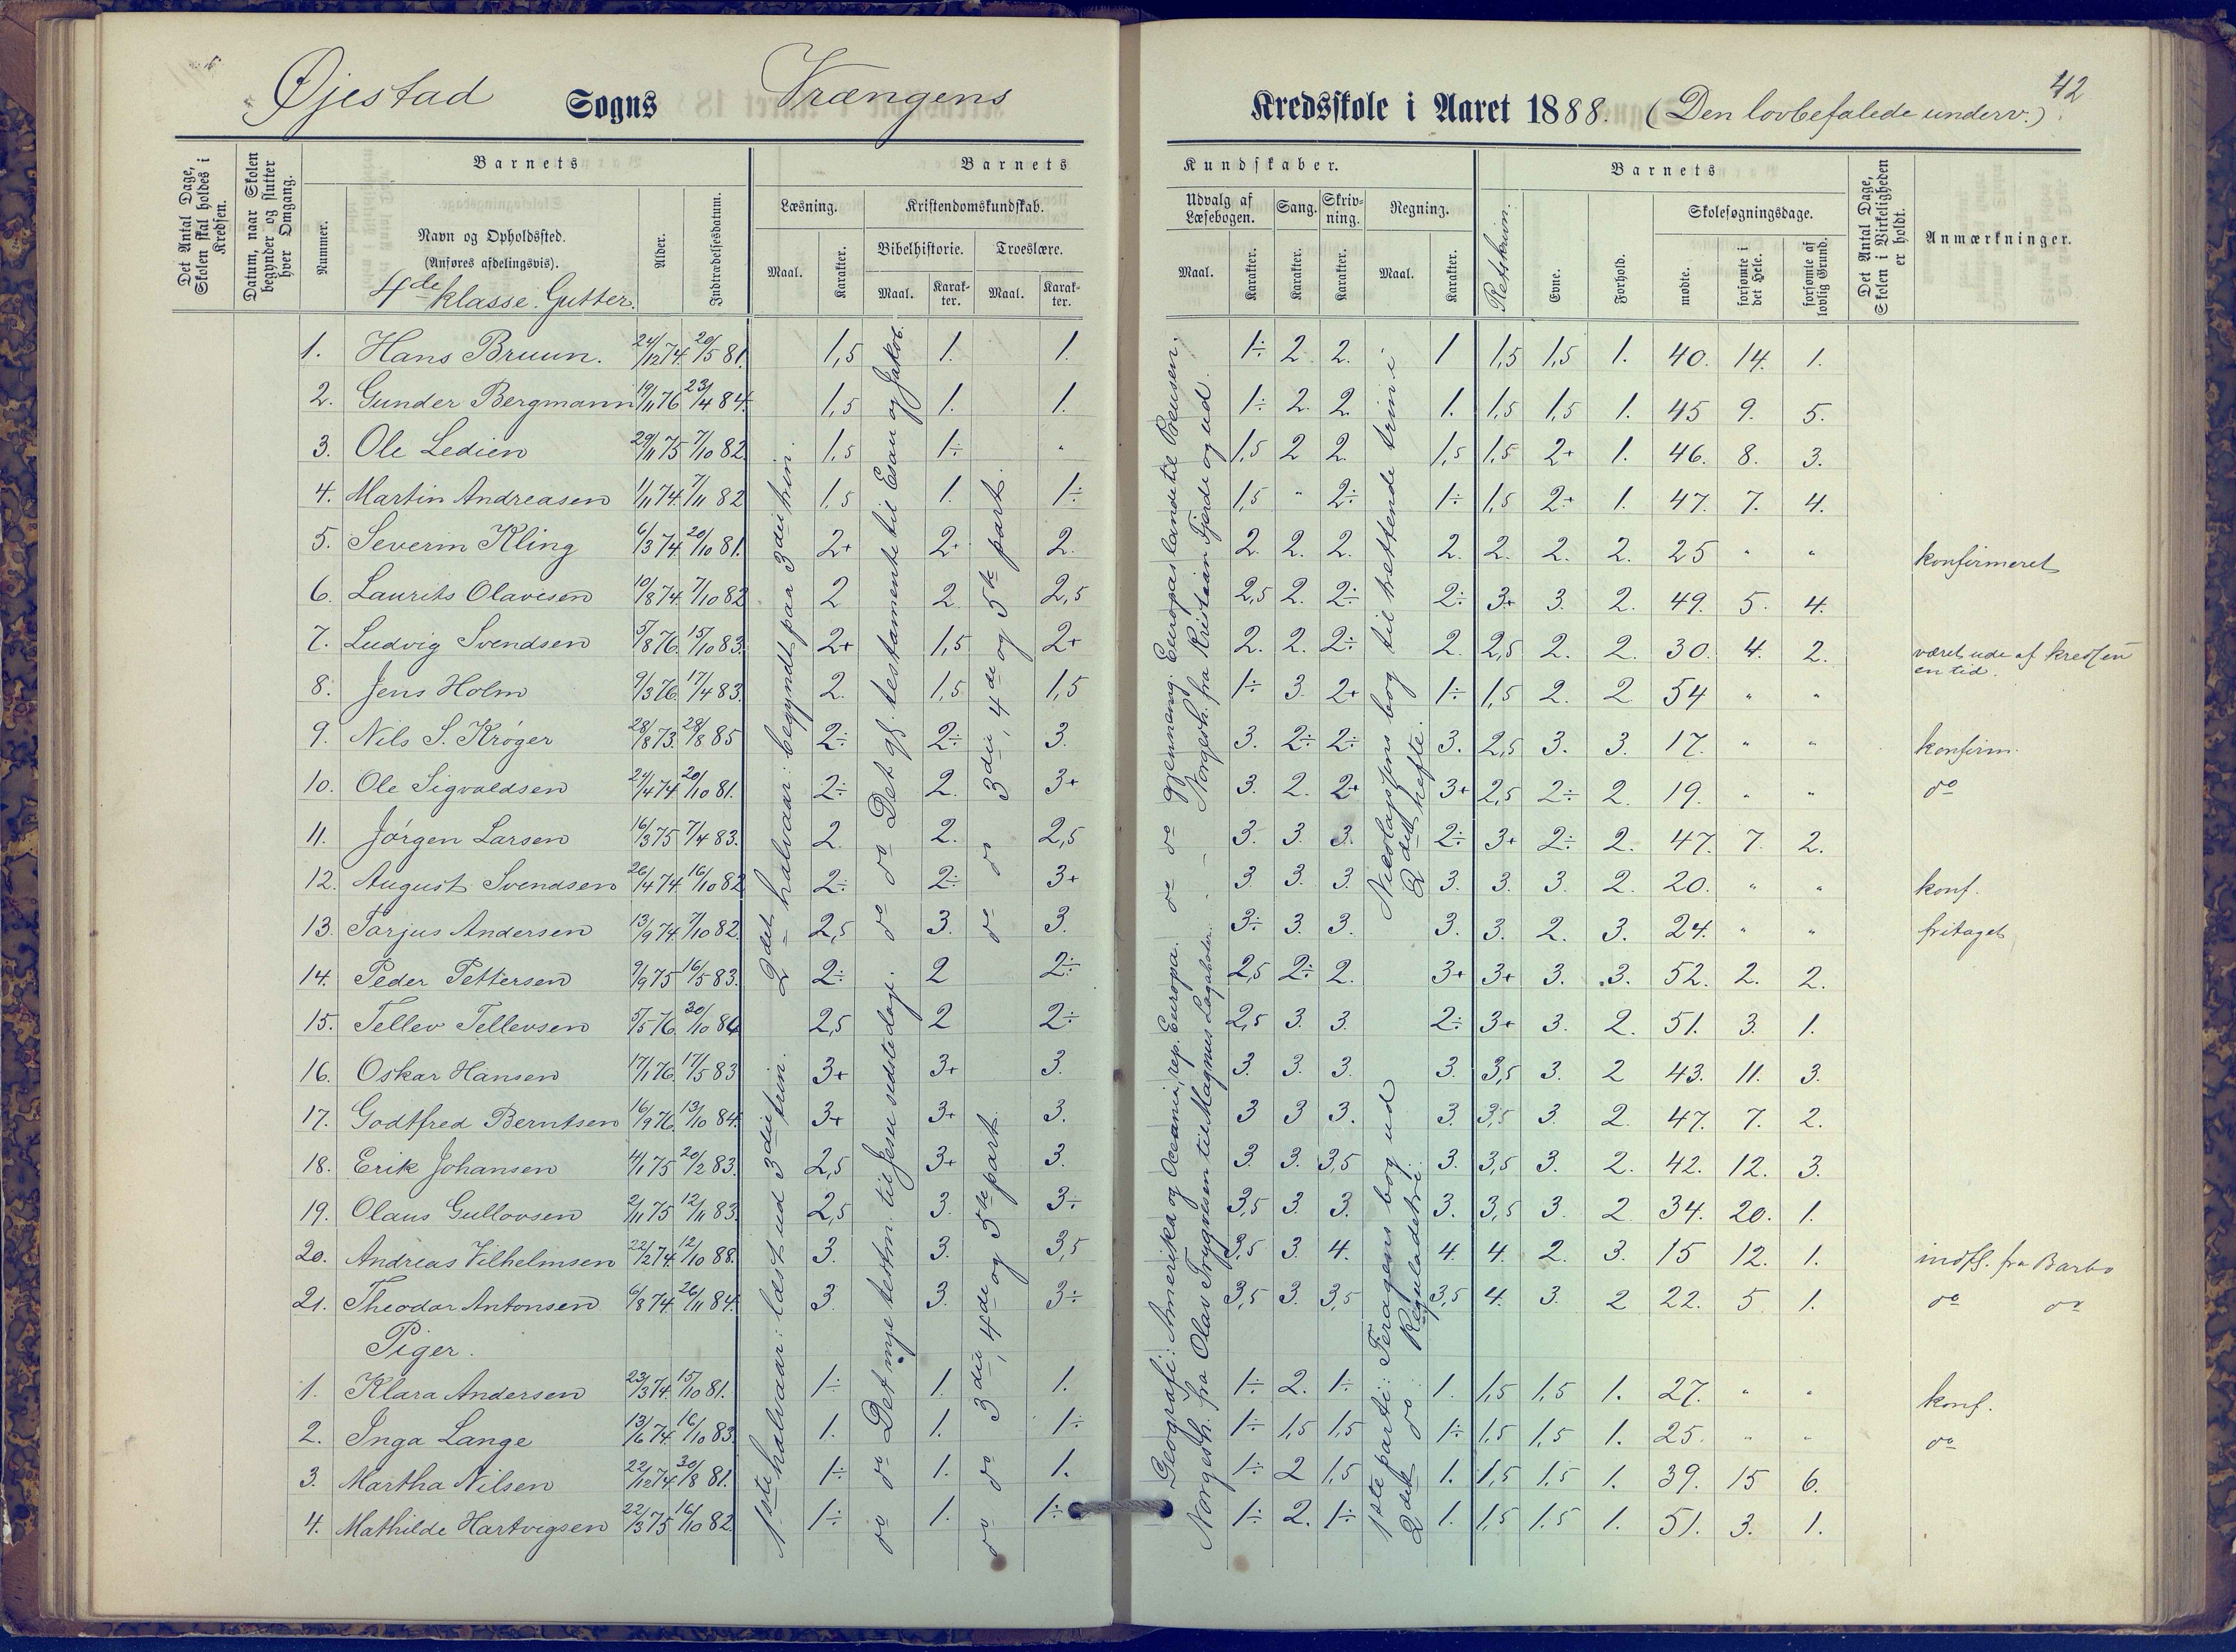 Øjestad Sogns Vrængens Kredsskole i Aaret 1888. (Den lovbefalede underv.)
42
Det Antal Dage, Skolen skal holdes i Kredsen.
Datum, naar Skolen begynder og slutter hver Omgang.
Barnets
Nummer.
Navn og Opholdssted.
(Anføres afdelingsvis).
4de klasse. Gutter.
Alder.
Indtrædelsesdatum.
Barnets Kundskaber.
Læsning.
Maal.
Karakter.
Kristendomskundskab.
Bibelhistorie.
Maal.
Karakter.
Troeslære.
Maal.
Karakter.
Udvalg af Læsebogen.
Maal.
Karakter.
Sang.
Karakter.
Skrivning.
Karakter.
Regning.
Maal.
Karakter.
Barnets
Retskrivn.
Evne.
Forhold.
Skolesøgningsdage.
mødte.
forsømte i det Hele.
forsømte af lovlig Grund.
Det Antal Dage, Skolen i Virkeligheden er holdt.
Anmærkninger.
1. Hans Bruun. 24/12 74. 20/5 81. 1,5 1. 1. 1÷ 2 2. 1 1,5 1,5 1. 40. 14. 1.
2. Gunder Bergmann 19/11 76 23/4 84. 1,5 1. 1. 1÷ 2. 2. 1. 1,5 1,5 1. 45 9. 5.
3. Ole Ledien 29/11 75 7/10 82. 1,5 1÷ " 1,5 2 2. 1,5 1,5 2+ 1. 46. 8. 3.
4. Martin Andreasen 1/11 74. 7/11 82 1,5 1. 1÷ 1,5 " 2÷ 1÷ 1,5 2+ 1. 47. 7. 4.
5. Severin Kling 6/3 74. 20/10 81. 2+ 2+ 2. 2. 2. 2. 2. 2. 2. 2. 25 " " konfirmeret
6. Laurits Olavesen 10/8 74. 7/10 82 2 2. 2,5 2,5 2. 2÷ 2÷ 3+ 3. 2. 49. 5. 4.
7. Ludvig Svendsen 5/8 76. 15/10 83. 2+ 1,5 2+ 2. 2. 2÷ 2. 2,5 2. 2. 30. 4. 2. været ude af kredsen en tid.
8. Jens Holm 9/3 76. 17/4 83. 2. 1,5 1,5 1÷ 3. 2+ 1÷ 1,5 2. 2 54 " "
9. Nils S. Krøger 28/8 73. 28/8 85 2÷ 2÷ 3. 3. 2÷ 2÷ 3. 2,5 3. 3. 17. " " konfirm.
10. Ole Sigvaldsen 24/4 74 20/10 81. 2÷ 2. 3+ 3. 2. 2+ 3+ 2,5 2÷ 2. 19. " " do
11. Jørgen Larsen 16/3 75 7/4 83. 2. 2. 2,5 3. 3. 3. 2÷ 3+ 2÷ 2. 47. 7. 2.
12. August Svendsen 26/4 74. 16/10 82 2÷ 2÷ 3+ 3. 3. 3. 3. 3. 3. 2. 20. " " konf.
13. Tarjus Andersen 13/9 74. 7/10 82. 2,5 3. 3. 3÷ 3. 3. 3. 3. 2. 3. 24. " " fritaget
14. Peder Pettersen 9/9 75 16/5 83. 2÷ 2 2÷ 2,5 2÷ 2. 3+ 3+ 3. 3. 52. 2. 2.
15. Tellev Tellevsen 5/5 76. 30/10 84 2,5 2 2÷ 2,5 3. 3. 2÷ 3+ 3. 2. 51. 3. 1.
16. Oskar Hansen 17/1 76. 17/5 83 3+ 3+ 3. 3. 3. 3. 3. 3,5 3. 2 43. 11. 3.
17. Godtfred Berntsen 16/9 76. 13/10 84. 3+ 3+ 3. 3 3 3. 3. 3,5 3. 2. 47. 7. 2.
18. Erik Johansen 4/1 75 20/2 83. 2,5 3+ 3. 3. 3. 3,5 3. 3,5 3. 2. 42. 12. 3.
19. Olaus Gullovsen 2/11 75 12/11 83. 2,5 3. 3÷ 3,5 3. 3. 3. 3,5 3. 2 34. 20. 1.
20. Andreas Vilhelmsen 22/2 74. 12/10 88. 3. 3. 3,5 3,5 3. 4. 4. 4. 2. 3. 15 12. 1. indfl. fra Barbo
21. Theodor Antonsen 6/8 74. 26/11 84. 3. 3. 3÷ 3,5 3. 3,5 3,5 4. 3. 2 22. 5 1. do do
Piger.
1. Klara Andersen 23/3 74. 15/10 81. 1÷ 1. 1. 1÷ 2. 1÷ 1. 1,5 1,5 1. 27. " " konf.
2. Inga Lange 13/6 74. 16/10 83. 1. 1. 1÷ 1÷ 1,5 1,5 1÷ 1,5 1,5 1. 25. " " do
3. Martha Nilsen 22/12 74 30/8 81. 1÷ 1. 1. 1÷ 2 1,5 1. 1,5 1,5 1. 39. 15 6.
4. Mathilde Hartvigsen 22/3 75 16/10 82. 1÷ 1. 1÷ 1÷ 2. 1÷ 1. 1,5 1,5 1. 51. 3. 1.
1ste halvaar: læst ud 3die trin. 2det halvaar: begyndt paa 3die trin.
do do Det nye testm. til Jesu sidste dage. do do Det gl. testamente til Esau og Jakob.
do do 3die, 4de og 5te part. do do 3die, 4de og 5te part.
Geografi: Amerika og Oceanien, rep. Europa. do do gjennemg. Europas lande til Preusen.
Norgesh. fra Olav Trygvesen til Magnus Lagabøter. - - Norgesh. fra Kristian Fjerde og ud.
1ste parti: Feragens bog ud Nicolaysens bog til trettende trin i
2det do: Reguladetri. 2det hefte.